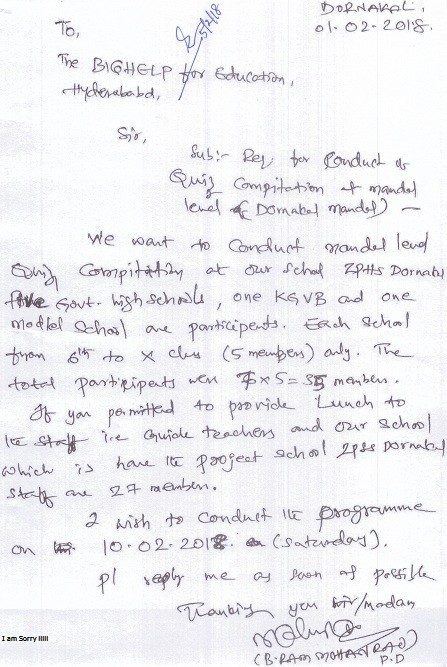 DORNAKAL,
01-02-2018.
5/2/18
To,
The BIGHELP for Education,
Hyderababd,
Sir,
Sub:- Req for Conduct of
Quiz Compitation at mandal
level (Dornakal mandal) —
We want to Conduct mandal level
Quiz Compitation at our school ZPHS Dornakal
five Govt. high schools, one KGVB and one
model School are participants. Each School
from 6th to X class (5 members) only. The
total participents were 7x5=35 members.
If you permitted to provide Lunch to
the staff i.e Guide teachers and our school
which is have the project school ZPSS Dornakal
staff are 27 members.
I wish to conduct the programme
on 10-02-2018. (saturday).
Pl reply me as soon as possible
Thanking you sir/madam
(B. RAM MOHAN RAO)
P.D
I am Sorry lllll